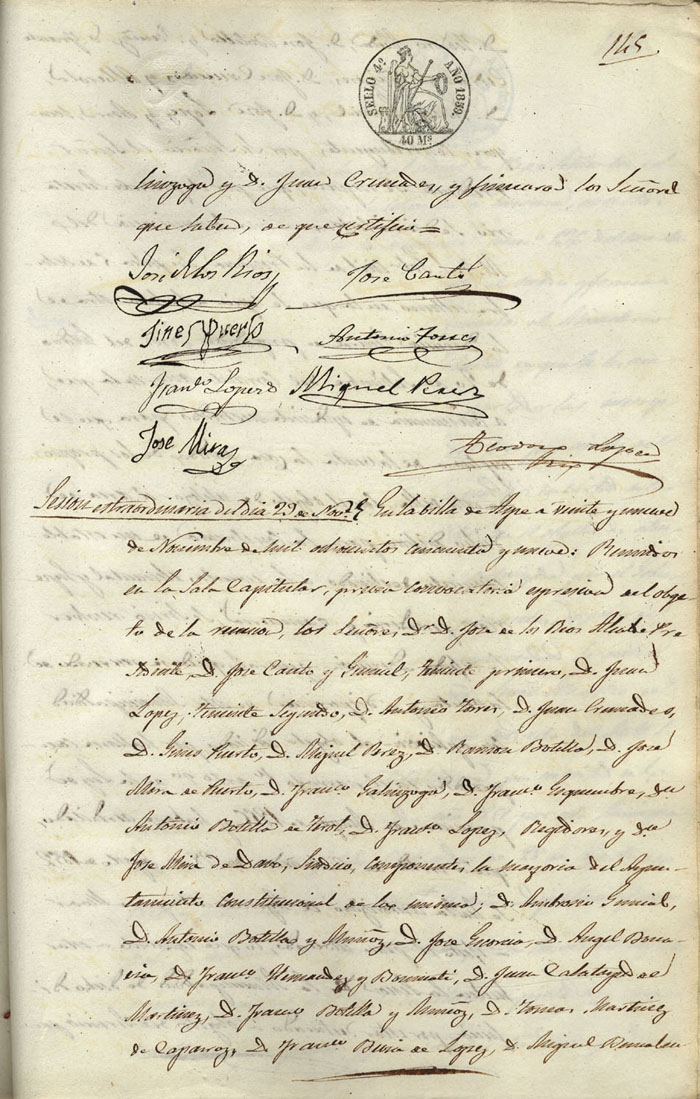 145.
SELLO 4º AÑO 1859.
40 Ms.
linzoga y D. Juan Cremades, y firmaron los Señores
que saben, de que certifico =
José de los Rios
Jose Cantó
Jines Puerto
Antonio Torres
Franco Lopez
Miguel Perez
Jose Mira
Lopez
Sesion extraordinaria del dia 29 de Nove. En la billa de Aspe a veinte y nueve
de Noviembre de mil ochocientos cincuenta y nueve: Reunidos
en la Sala Capitular, previa convocatoria espresiva del obge-
to de la reunion, los Señores Dn. Jose de los Rios Alcalde Pre-
sidente, D. Jose Canto y Gumiel, Teniente primero, D. Juan
Lopez, Teniente Segundo, D. Antonio Torres, D. Juan Cremades,
D. Gines Puerto, D. Miguel Perez, D. Ramon Botella, D. José
Mira de Puerto, D. Franco. Galinzoga, D. Franco. Esquembre, Dn.
Antonio Botella de Terol, D. Franco. Lopez, Regidores, y Dn.
Jose Mira de Davo, Sindico, componentes la mayoria del Ayun-
tamiento Constitucional de la misma; D. Ambrosio Gumiel,
D. Antonio Botella y Muñoz, D. Jose Garcia, D. Angel
D. Franco. Hernandez y Bonmati, D. Juan Calatayud de
Martinez, D. Franco Botella y Muñoz, D. Tomas Martinez
de Caparroz, D. Franco. de Lopez, D. Miguel